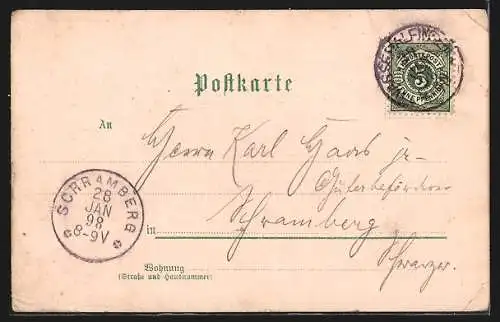 Postkarte
5
An
Herrn Karl Haas jr.
Güterbeförderer
SCHRAMBERG
28
JAN
98
8-9V
in Schramberg
Schwarzw.
Wohnung
(Straße und Hausnummer)